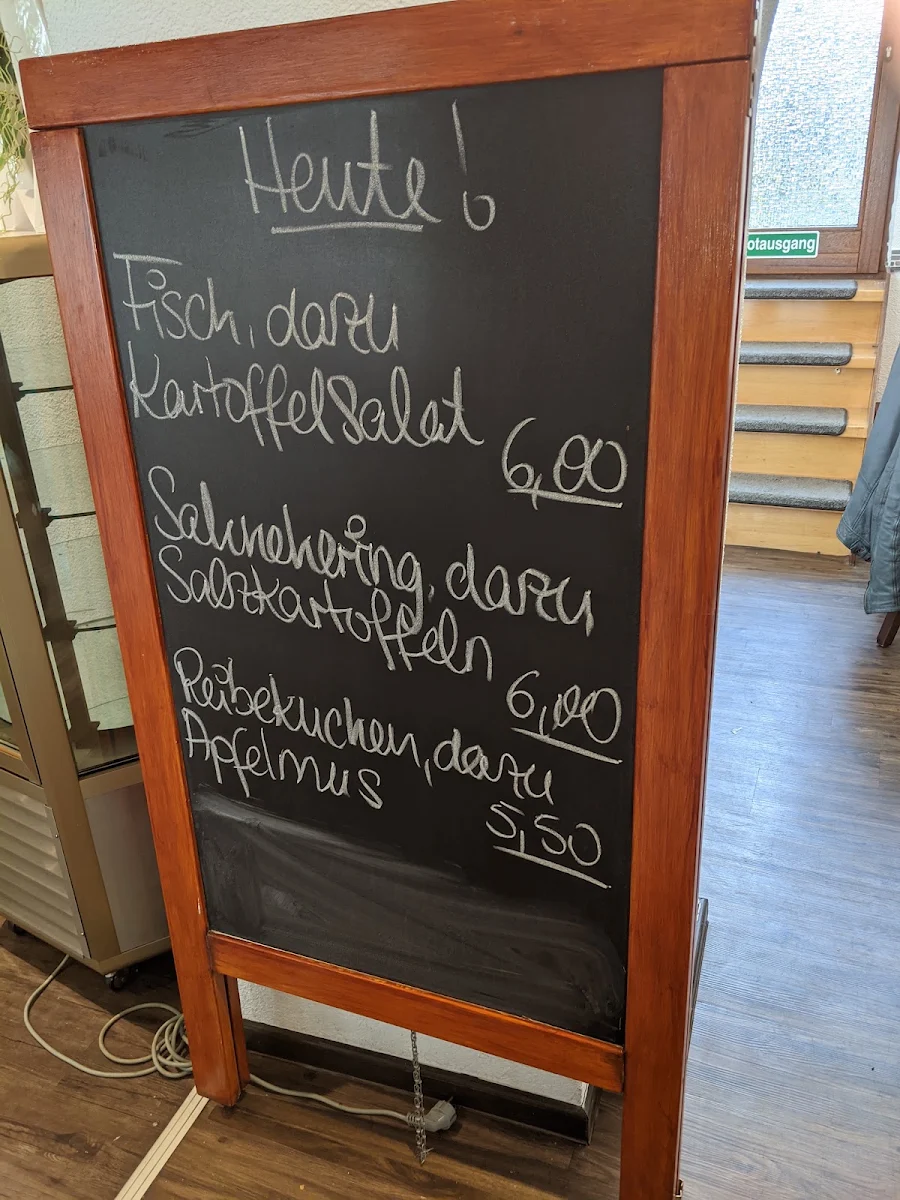 Heute!
Fisch, dazu
Kartoffelsalat
6,00
Sahnehering, dazu
Salzkartoffeln
6,00
Reibekuchen, dazu
Apfelmus
5,50
otausgang